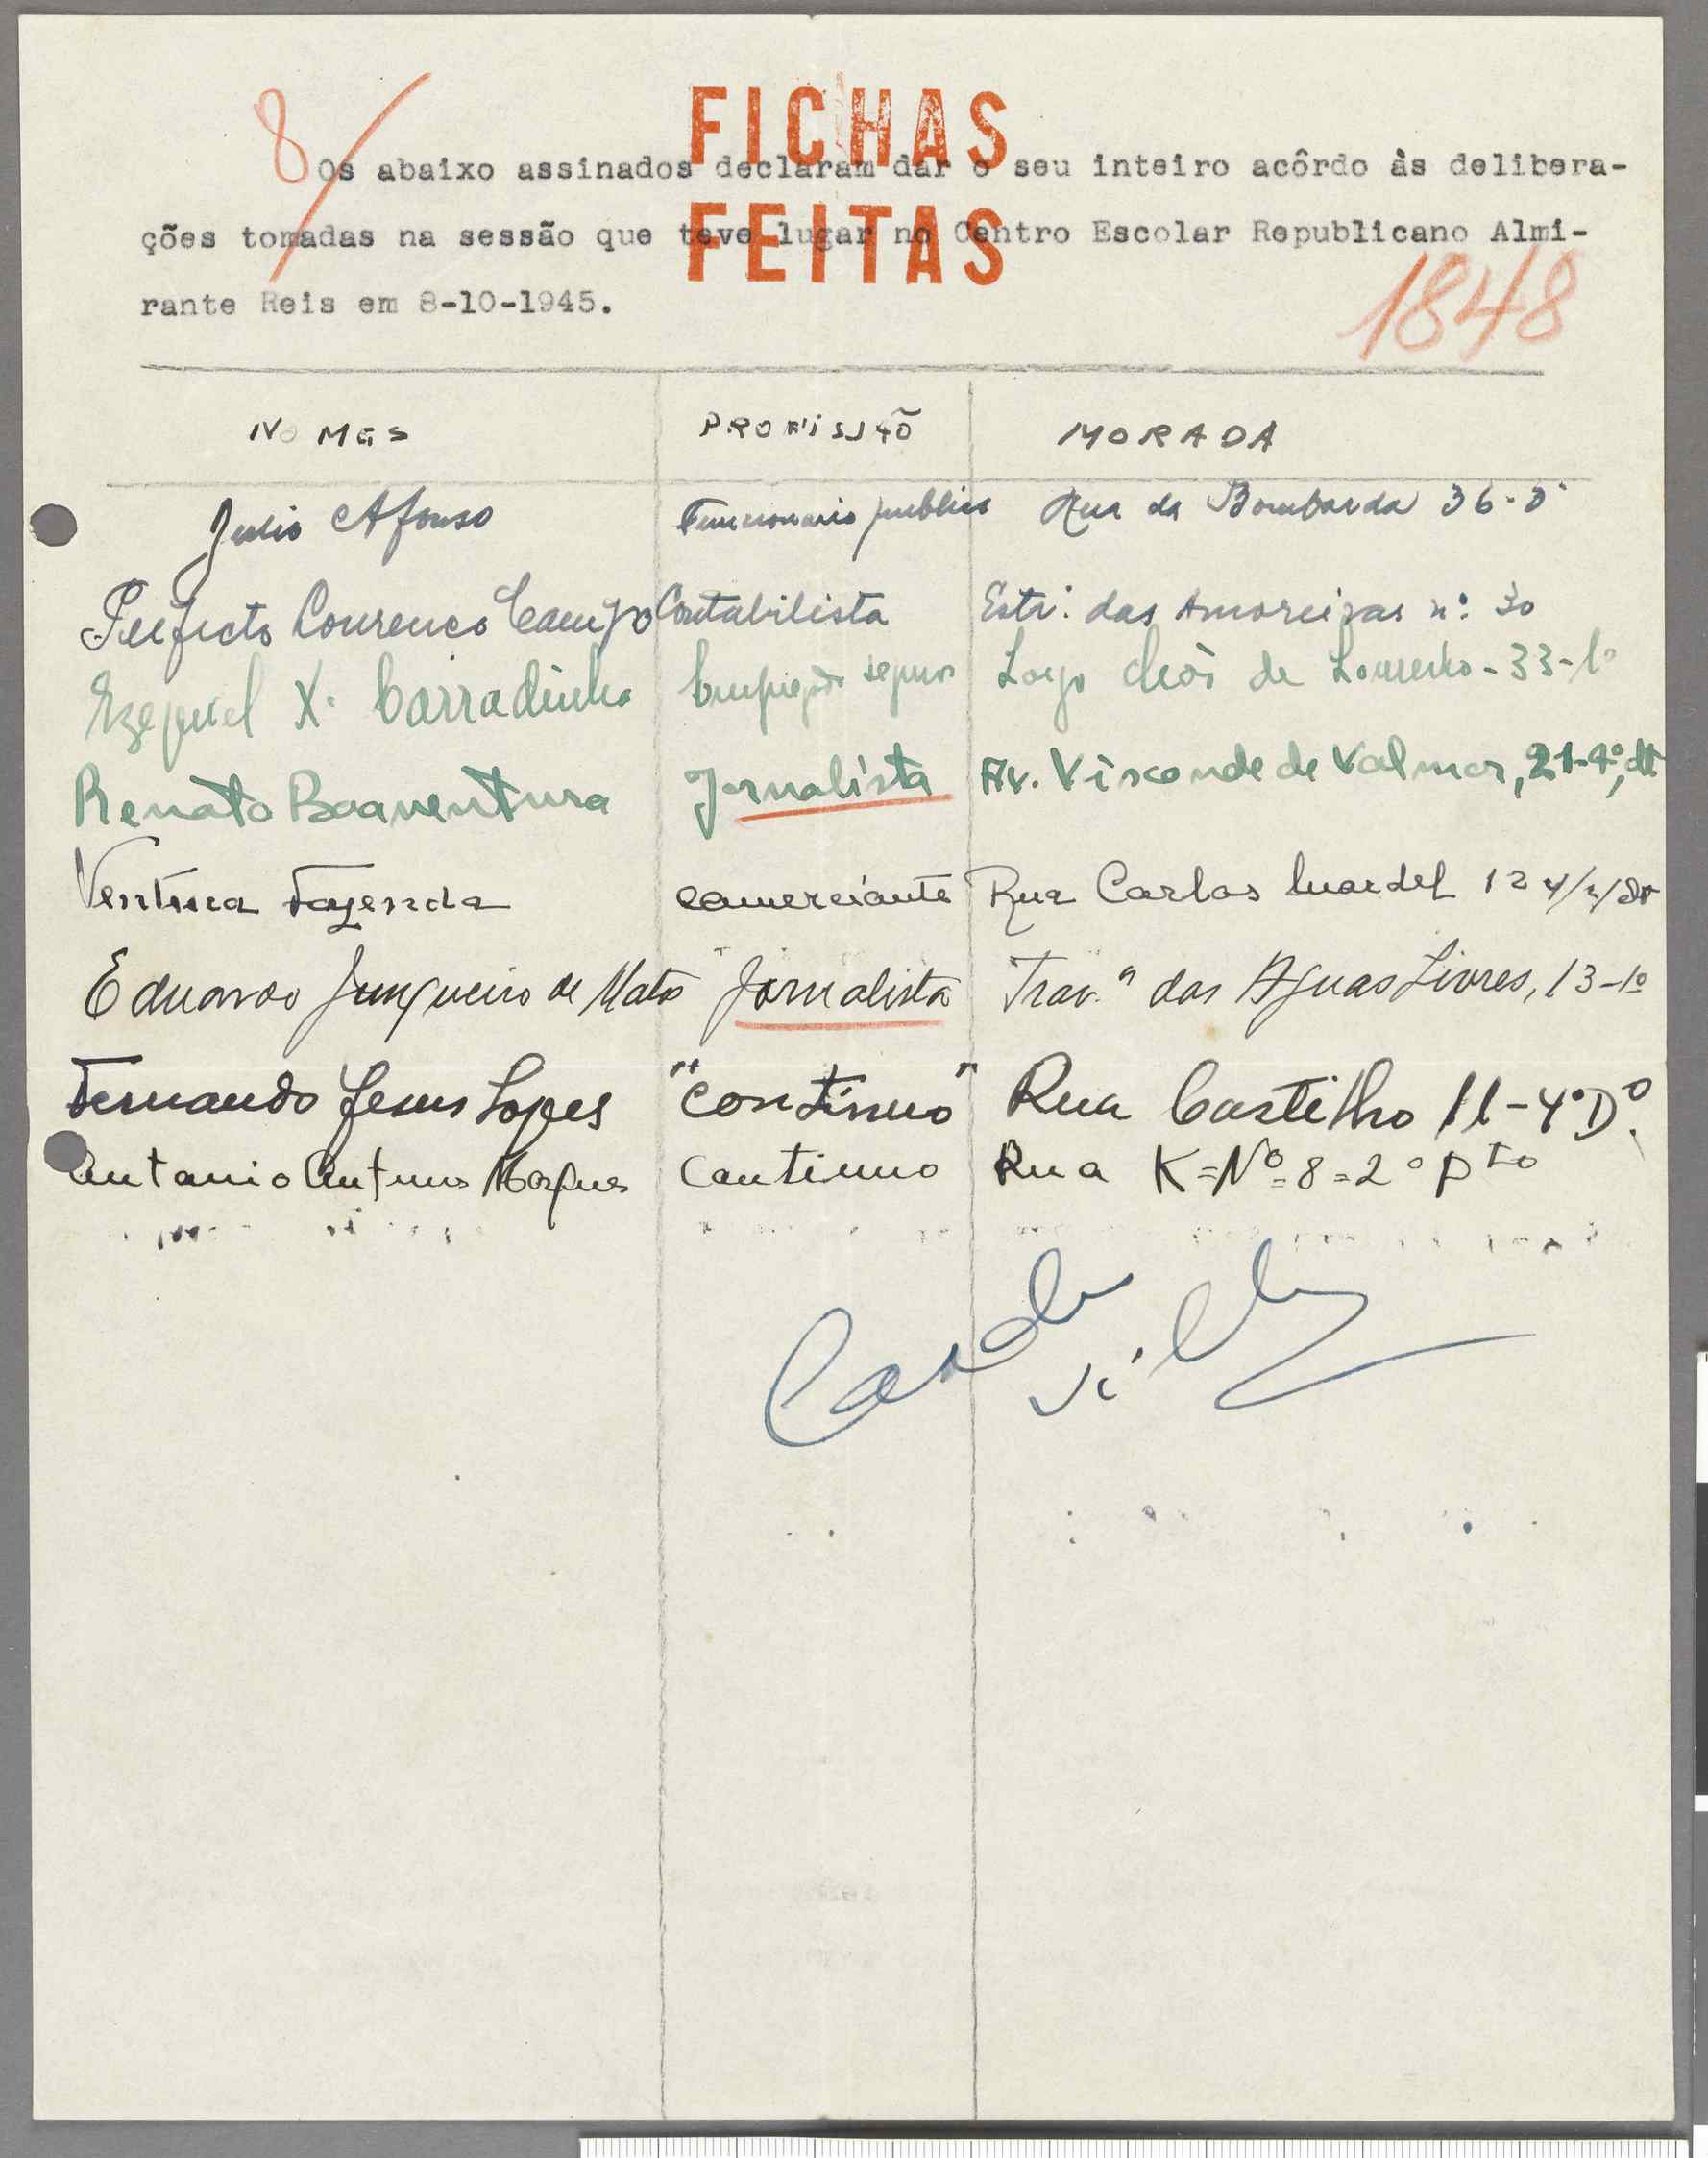 8
FICHAS
Os abaixo assinados declaram dar o seu inteiro acôrdo às delibera-
ções tomadas na sessão que teve lugar no Centro Escolar Republicano Almi-
FEITAS
rante Reis em 8-10-1945.
1848
NOMES PROFISSÃO MORADA
Julio Afonso Funcionario publico Rua da Bombarda 36-3º
Perfecto Lourenço Campo Contabilista Estr. das Amoreiras nº 30
Ezequiel X. Carradinha Empregado seguros Largo do de 33-1º
Renato Boaventura Jornalista Av. Visconde de Valmor, 21-4º, dt
Ventura Fazenda comerciante Rua Carlos Mardel 12
Eduardo Junqueiro de Mato Jornalista Trav.ª das Aguas Livres, 13-1º
Fernando Jesus Lopes "continuo" Rua Castilho 11-4ºDº.
Antonio Antunes Marques Continuo Rua K=Nº=8=2º Dto